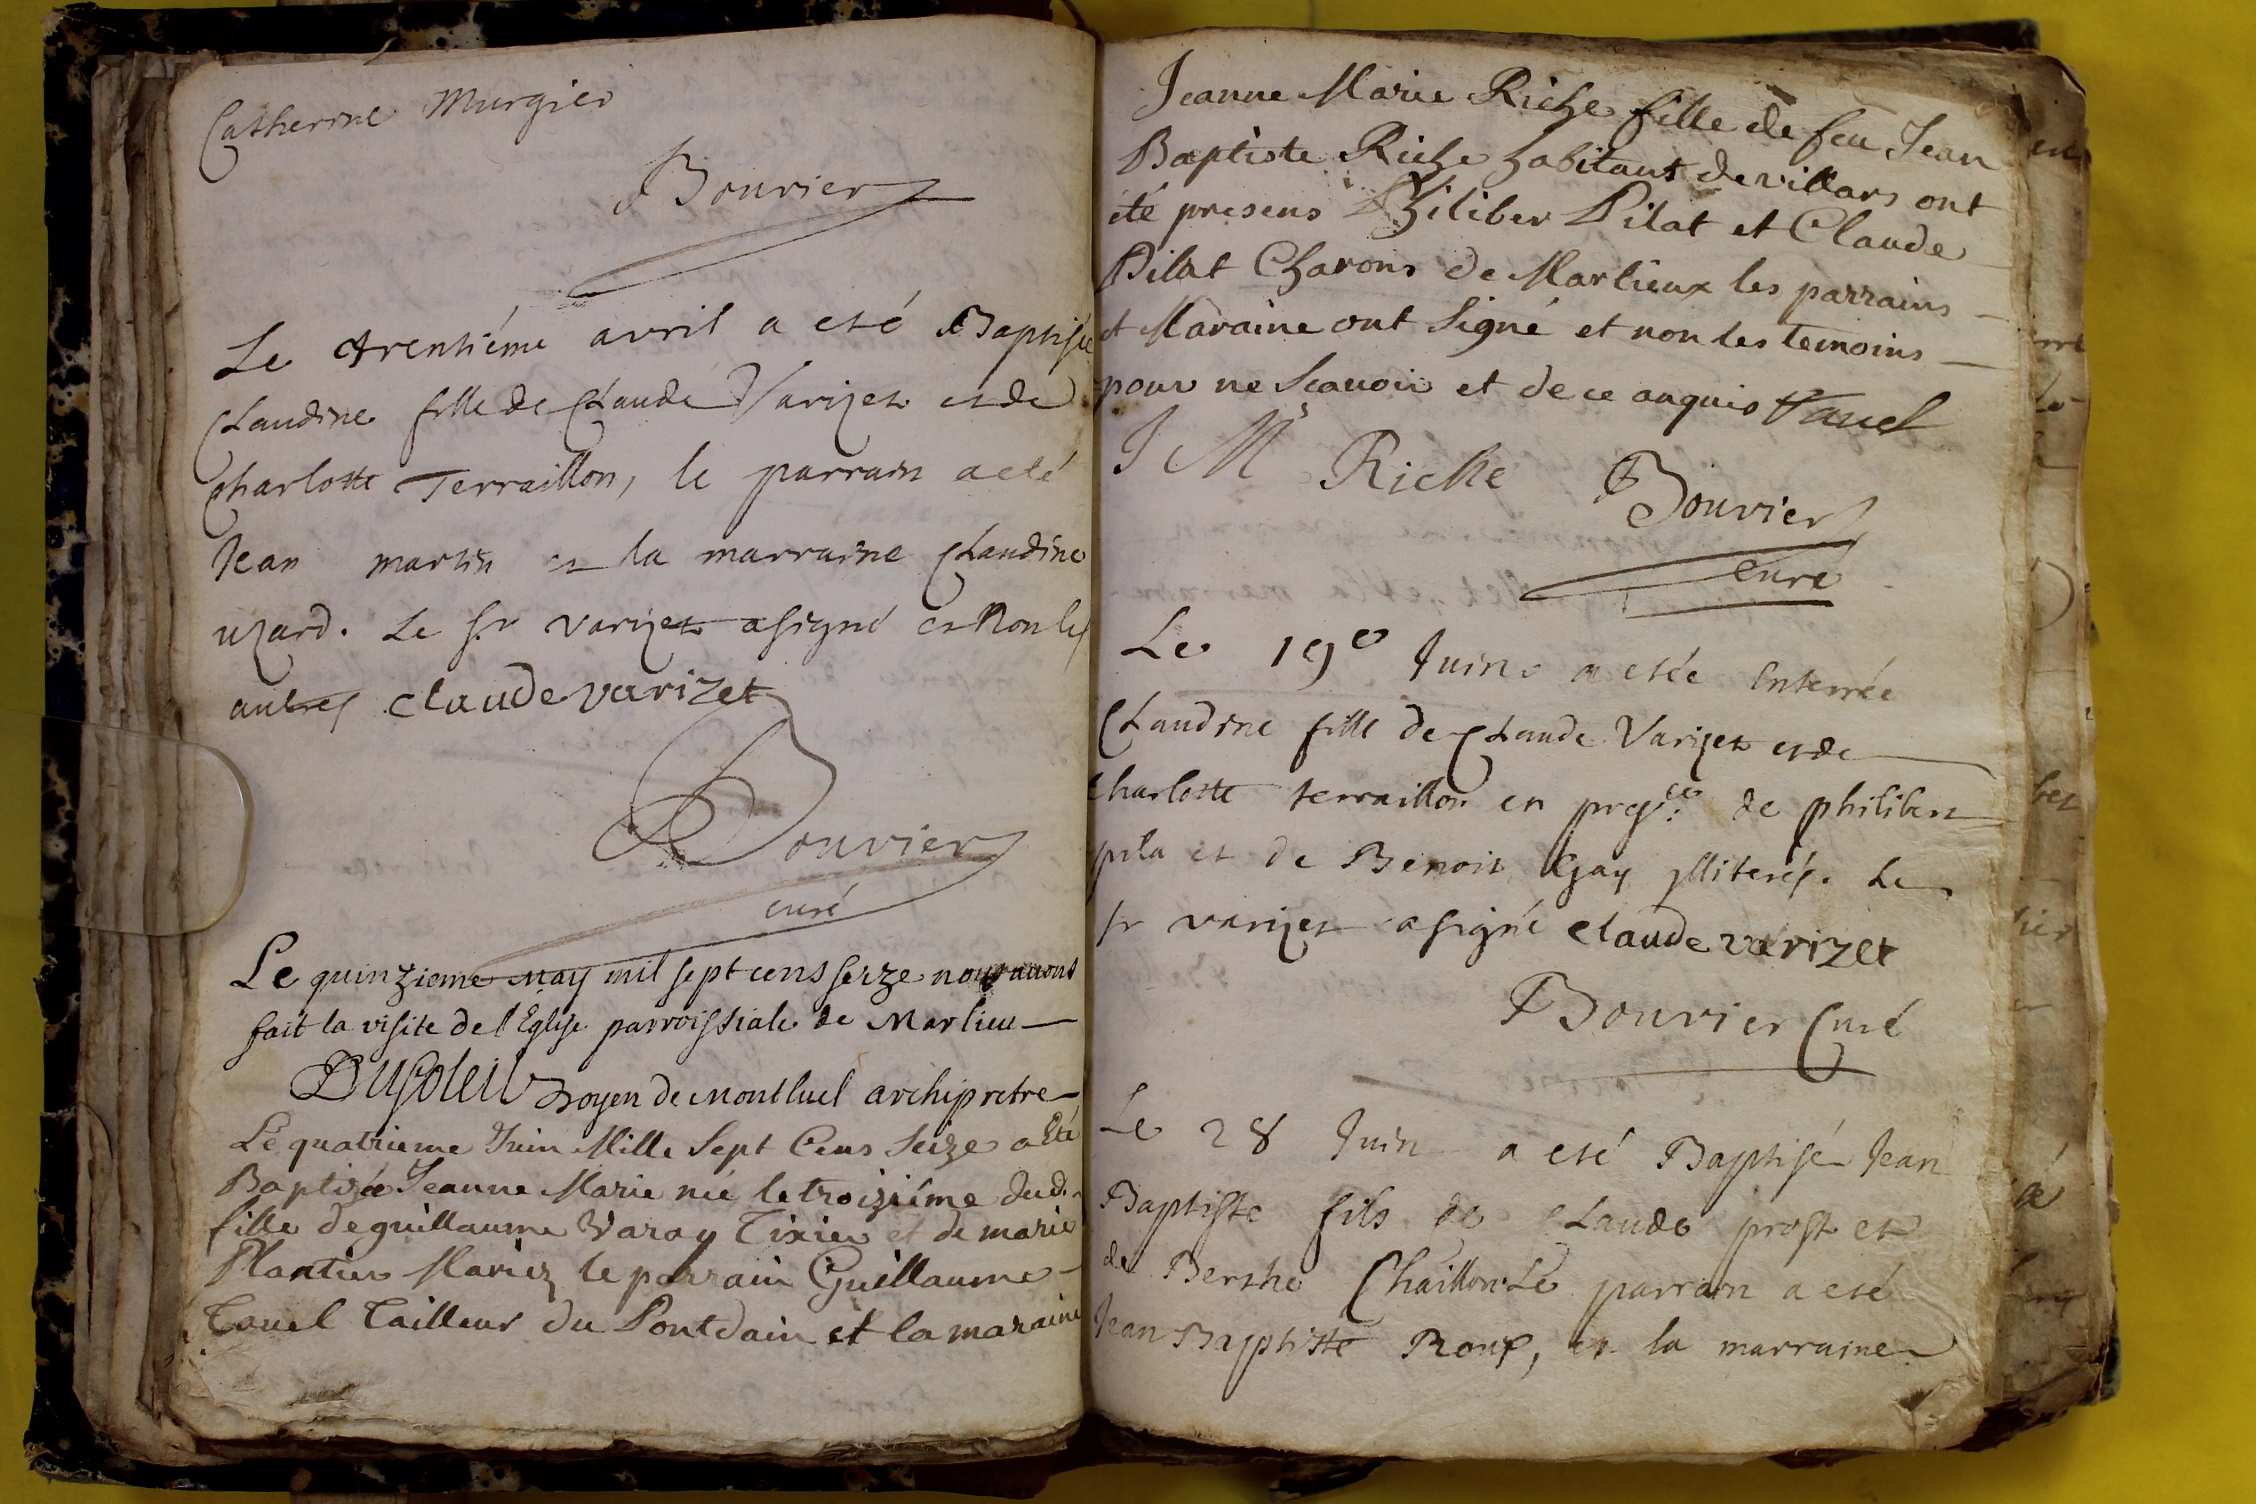 Catherine Murgier
Bouvier
Le trentiéme avril a eté Baptisée
Claudine fille de Claude Varizet et de
Charlotte Terraillon, le parrain a eté
Jean martin et la marraine Claudine
uzard. Le sr varizet a signé et Non les
autres claude varizet
Bouvier
curé
Le quinzieme May mil sept cens seize nous auons
fait la visite de l'Eglise parroissiale de Marlieu
Dusoleil Doyen de Montluel archipretre
Le quatrieme Juin Mille Sept Cens Seize a Eté
Baptizée Jeanne Marie née le troiziéme dud.
fille de guillaume Varay Tixier et de marie
Plantier Mariez le parrain Guillaume
Tavel Tailleur du Pontdain et la maraine
Jeanne Marie Riche fille de feu Jean
Baptiste Riche habitant de villars ont
été presens Philiber Pilat et Claude
Pilat Charons de Marlieux les parrains
et Maraine ont Signé et non les temoins
pour ne Scauoir et de ce anquis Tavel
J M Riche Bouvier
curé
Le 19e Juin a etée Enterrée
Claudine fille de Claude Varizet et de
Charlotte terraillon en presce de philibert
pila et de Benoit Gay jlliterés. Le
sr varizet a signé claude varizet
Bouvier Curé
Le 28 Juin a eté Baptisé Jean
Baptiste fils de Claude prost et
de Berthe Chaillon. Le parrain a eté
Jean Baptiste Roux, et la marraine